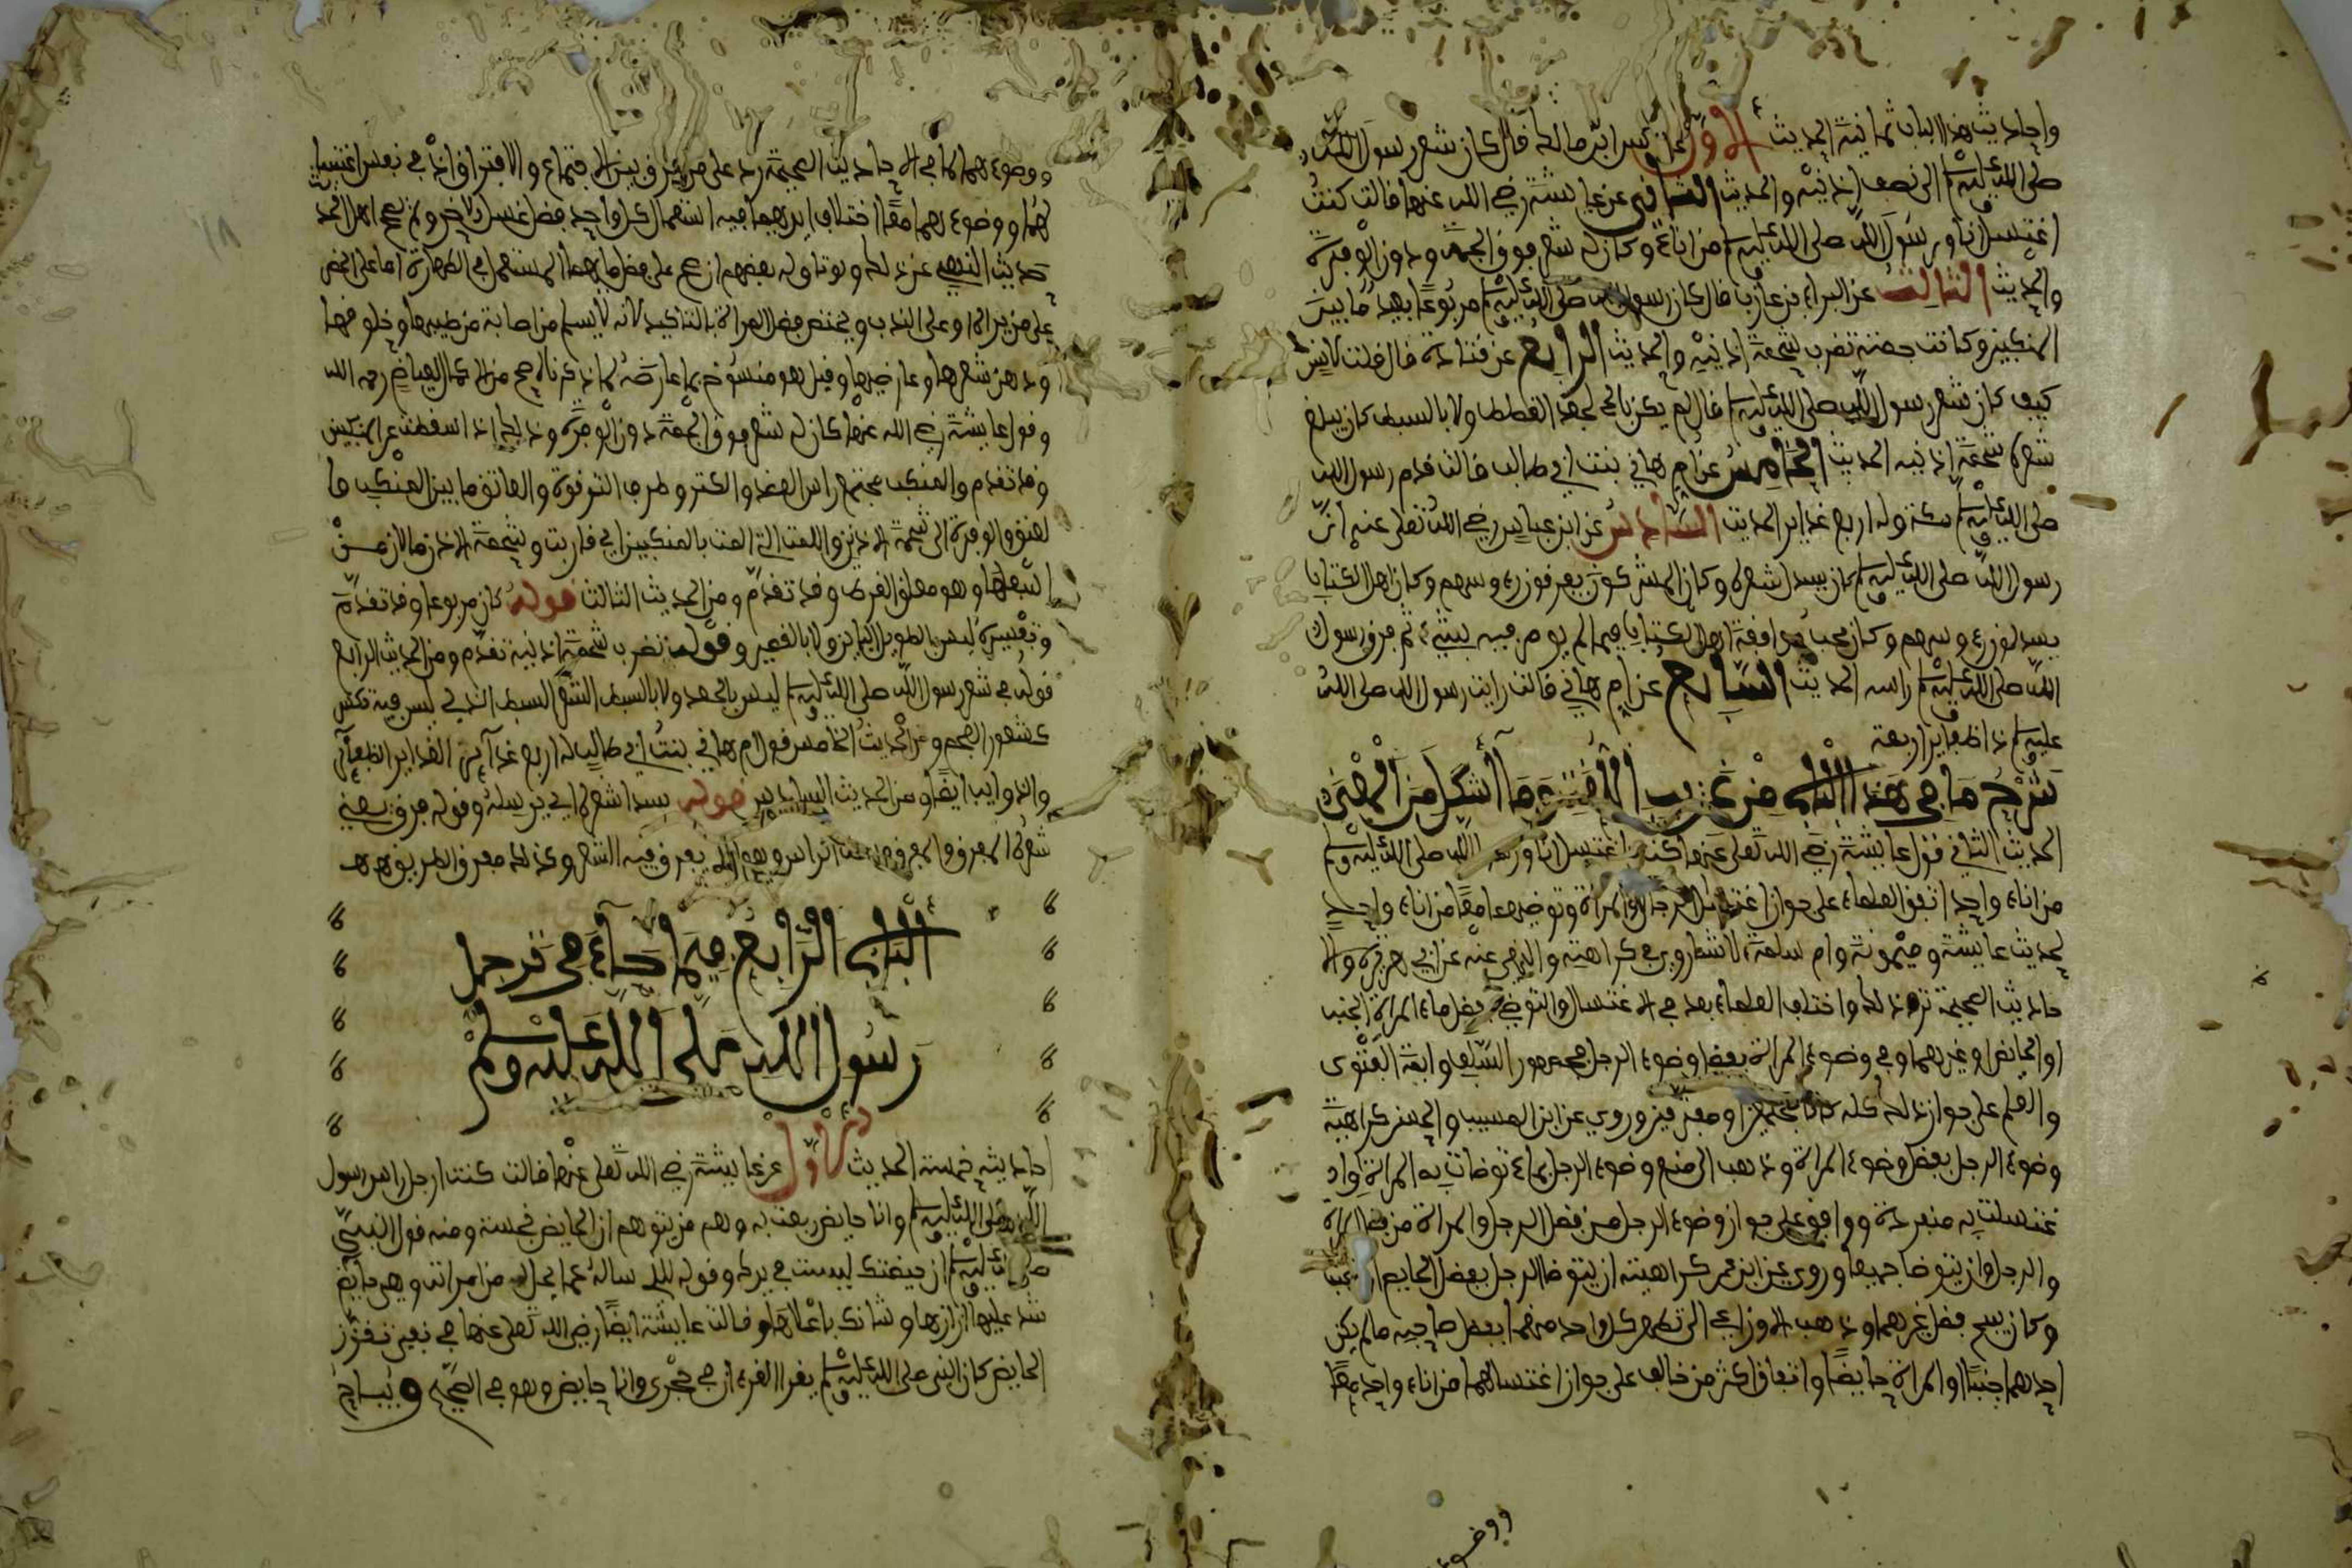 واحاديث هذا الباب ثمانية الحديث الاول عن انس ابن مالك قال كان شعر رسول الله
صلى الله عليه وسلم الى نصف اذنيه والحديث الثاني عن عايشة رضي الله عنها قالت كنت
اغتسل انا ورسول الله صلى الله عليه وسلم من اناء وكان له شعر فوق الجمة ودون الوفرة
والحديث الثالث عن البراء بن عازب قال كان رسول الله صلى الله عليه وسلم مربوعا بعيد ما بين
المنكبين وكانت جمته تضرب شحمة اذنيه والحديث الرابع عن قتادة قال قلت لانس
كيف كان شعر رسول الله صلى الله عليه وسلم قال لم يكن بالجعد القطط ولا بالسبط كان يبلغ
شعره شحمة اذنيه الحديث الخامس عن ام هاني بنت ابي طالب قالت قدم رسول الله
صلى الله عليه وسلم مكة وله اربع غداير الحديث السادس عن ابن عباس رضي الله تعلى عنه ان
رسول الله صلى الله عليه وسلم كان يسدل شعره وكان المشركون يفرقون رءوسهم وكان اهل الكتاب
يسدلون رءوسهم وكان يحب موافقة اهل الكتاب فيما لم يومر فيه بشيء ثم فرق رسول
الله صلى الله عليه وسلم راسه الحديث السابع عن ام هاني قالت رايت رسول الله صلى الله
عليه وسلم ذا ظفاير اربعة
شرح ما في هذا الباب من غريب اللغة وما اشكل من المعنى
الحديث الثاني قول عايشة رضي الله تعلى عنها كنت اغتسل انا ورسول الله صلى الله عليه وسلم
من اناء واحد اتفق العلماء على جواز اغتسال الرجل والمراة وتوضيهما معا من اناء واحد
لحديث عايشة وميمونة وام سلمة الا شيئا روي في كراهته والنهي عنه عن ابي هريرة والا
حاديث الصحيحة ترد ذلك واختلف العلماء بعد في الاغتسال والتوضي بفضل ماء المراة الجنب
او الحايض او غيرهما وفي وضوء المراة بفضل وضوء الرجل فجمهور السلف وايمة الفتوى
والعلم على جواز ذلك كله كانا مجتمعين او مفترقين وروي عن ابن المسيب والحسن كراهية
وضوء الرجل بفضل وضوء المراة وذهب الى منع وضوء الرجل بماء توضات به المراة او ا
غتسلت به منفردة ووافق على جواز وضوء الرجل من فضل الرجل والمراة من فضل المراة
والرجل وان يتوضا جميعا وروي عن ابن عمر كراهيته ان يتوضا الرجل بفضل الحايض او الجنب
وكان يبيح فضل غيرهما وذهب الاوزاعي الى تطهر كل واحد منهما بفضل صاحبه ما لم يكن
احدهما جنبا او المراة حايضا واتفاق اكثر من خالف على جواز اغتسالهما من اناء واحد معا
ووضو
ووضوءهما كما في الاحاديث الصحيحة رد على من فرق بين الاجتماع والافتراق اذ في نفس اغتسا
لهما ووضوءهما معا اختلاف ايديهما فيه استعمال كل واحد فضل غسل الاخر ولم يصح اهل الحد
يث النهي عن ذلك وتوتاوله بعضهم ان صح على فضل ما بهما المستعمل في الطهارة اما على الحض
على من يراه او على الندب ويختص فضل المراة بالتاكيد لانه لا يسلم من اصابة من طيبها وخلوقها
ودهن شعرها وعارضيها وقيل هو منسوخ بما عارضه كما ذكرنا صح من الاكمال لعياض رحمه الله
وقول عايشة رضي الله عنها كان له شعر فوق الجمة دون الوفرة وذلك اذا اسقطت عن المنكبين
وقد تقدم والمنكب مجتمع راس العضد والكتف وطرف الترقوة والعاتق ما بين المنكب وا
لعنق والوفرة الى شحمة الاذنين واللمة التي المت بالمنكبين اي قاربت وشحمة الاذن ما لان من
اسفلها وهو معلق القرط وقد تقدم ومن الحديث الثالث قوله كان مربوعا وقد تقدم
وتفسيره ليس بالطويل الباين ولا بالقصير وقوله تضرب شحمة اذنيه تقدم ومن الحديث الرابع
قوله في شعر رسول الله صلى الله عليه وسلم ليس بالجعد ولا بالسبط الشعر السبط الذي ليس فيه تكسر
كشعور العجم ومن الحديث الخامس قول ام هاني بنت ابي طالب له اربع غداير الغداير الظفاير
والذوايب ايضا ومن الحديث السادس قوله يسدل شعره اي يرسله وقوله فرق يعني
شعره المفرق والمفرق وسط الراس وهو الذي يفرق فيه الشعر وكذلك مفرق الطريق هـ هـ
الباب الرابع فيما جاء في ترجل
رسول الله صلى الله عليه وسلم
احاديثه خمسة الحديث الاول عن عايشة رضي الله تعلى عنها قالت كنت ارجل راس رسول
الله صلى الله عليه وسلم وانا حايض ربعت به وهم من يتوهم ان الحايض نجسة ومنه قول النبي
صلى الله عليه وسلم ان حيضتك ليست في يدك وقوله للذي ساله عما يحل له من امراته وهي حايض
شد عليها ازارها وشانك باعلاها وقالت عايشة ايضا رضي الله تعلى عنها في نفي تقزز
الحايض كان النبي صلى الله عليه وسلم يقرا القرءان في حجري وانا حايض وهو في الصحيح ويباح